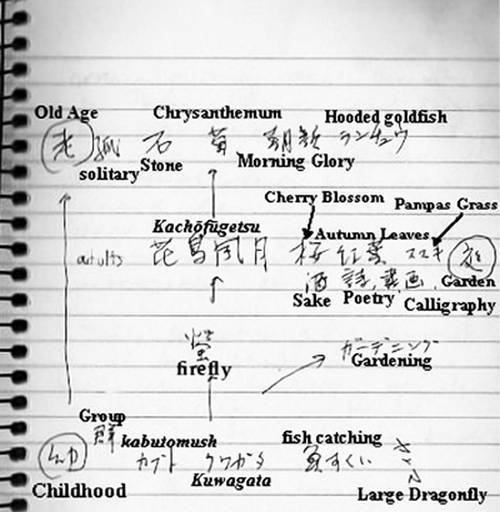 Old Age Chrysanthemum Hooded goldfish
老 孤 石 菊 朝顔 ランチュウ
solitary Stone Morning Glory
Cherry Blossom Pampas Grass
Kachōfūgetsu Autumn Leaves
adults 花鳥風月 桜 紅葉 ススキ 庭
酒 詩, 書画, Garden
Sake Poetry Calligraphy
蛍 ガーデニング
firefly Gardening
Group
群 kabutomush fish catching
幼 カブト クワガタ 魚すくい
Kuwagata
Childhood Large Dragonfly